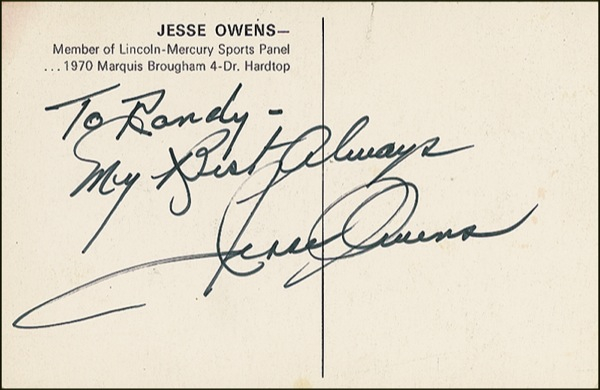 JESSE OWENS—
Member of Lincoln-Mercury Sports Panel
...1970 Marquis Brougham 4-Dr. Hardtop
To Randy -
My Best Always
Jesse Owens